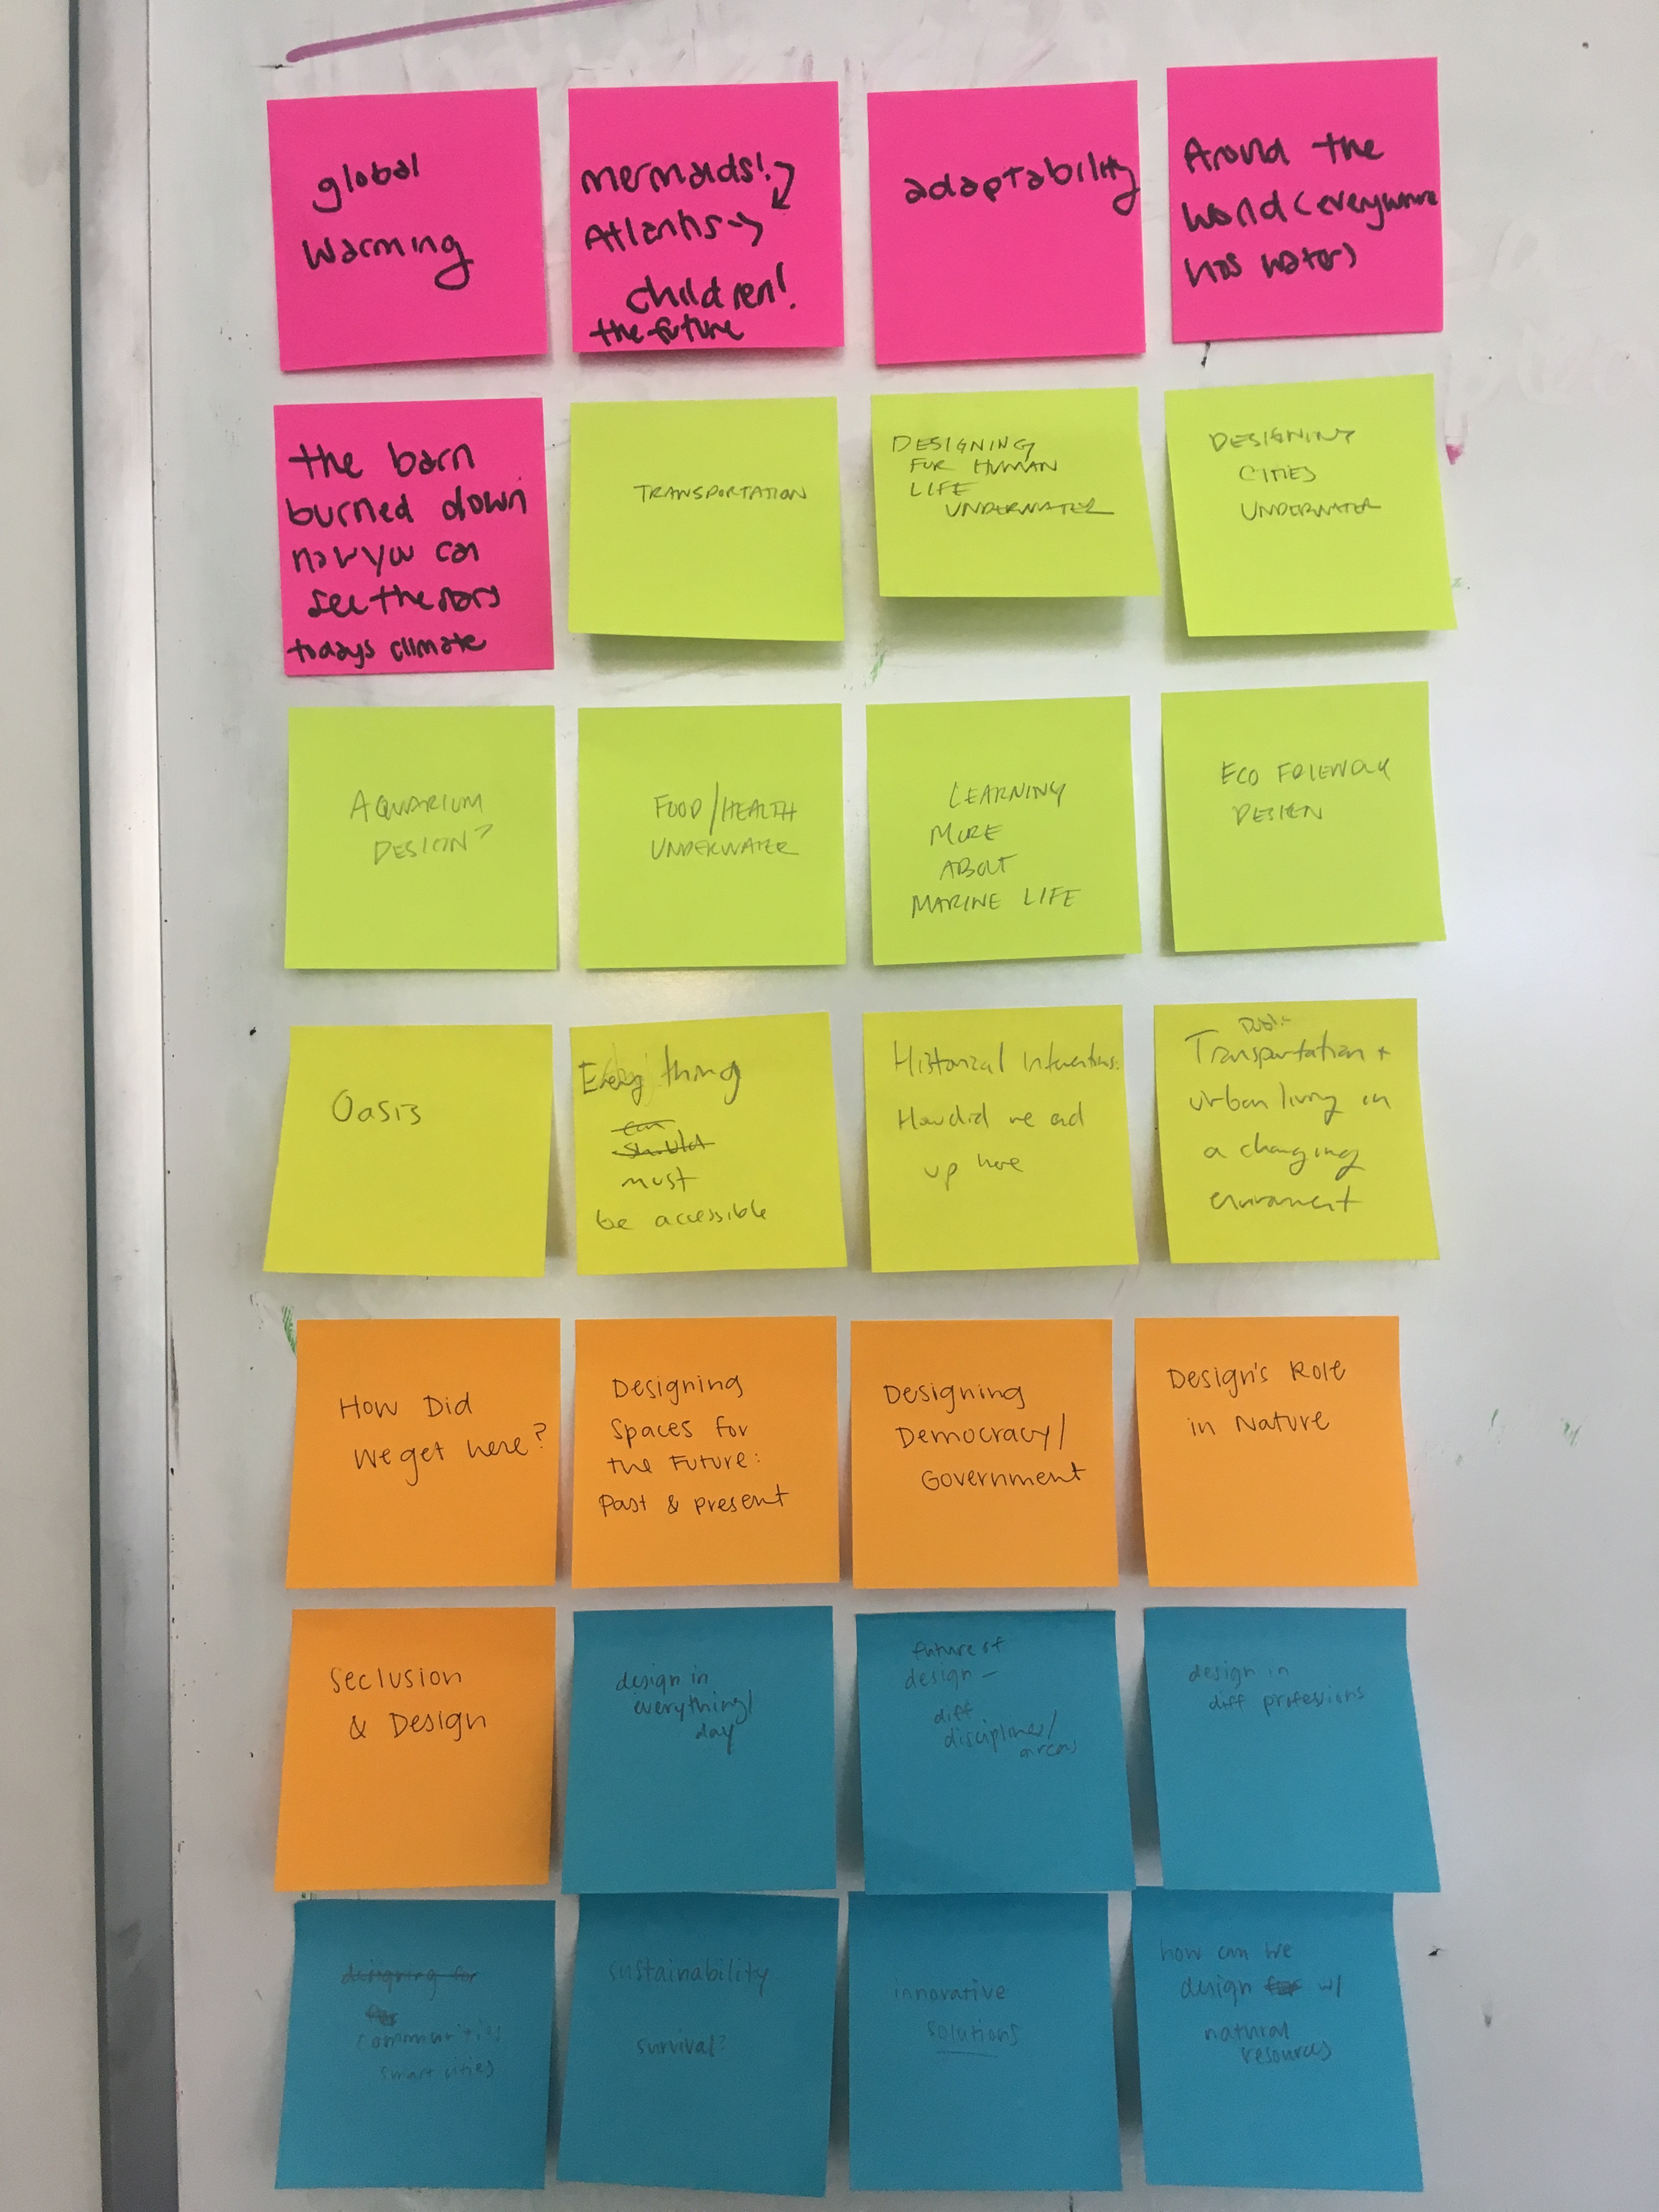 global
warming
mermaids!
Atlantis →
children!
the future
adaptability
Around the
world (everywhere
has water)
the barn
burned down
now you can
see the stars
todays climate
TRANSPORTATION
DESIGNING
FOR HUMAN
LIFE
UNDERWATER
DESIGNING
CITIES
UNDERWATER
AQUARIUM
DESIGN?
FOOD/HEALTH
UNDERWATER
LEARNING
MORE
ABOUT
MARINE LIFE
ECO FRIENDLY
DESIGN
Oasis
Everything
can
should
must
be accessible
Historical Interventions:
How did we end
up here
Public
Transportation +
urban living in
a changing
environment
How Did
We get here?
Designing
Spaces for
the Future:
Past & present
Designing
Democracy/
Government
Design's Role
in Nature
Seclusion
& Design
design in
everything/
day
future of
design –
diff
disciplines/
areas
design in
diff professions
designing for
communities
smart cities
sustainability
survival?
innovative
solutions
how can we
design for w/
natural
resources